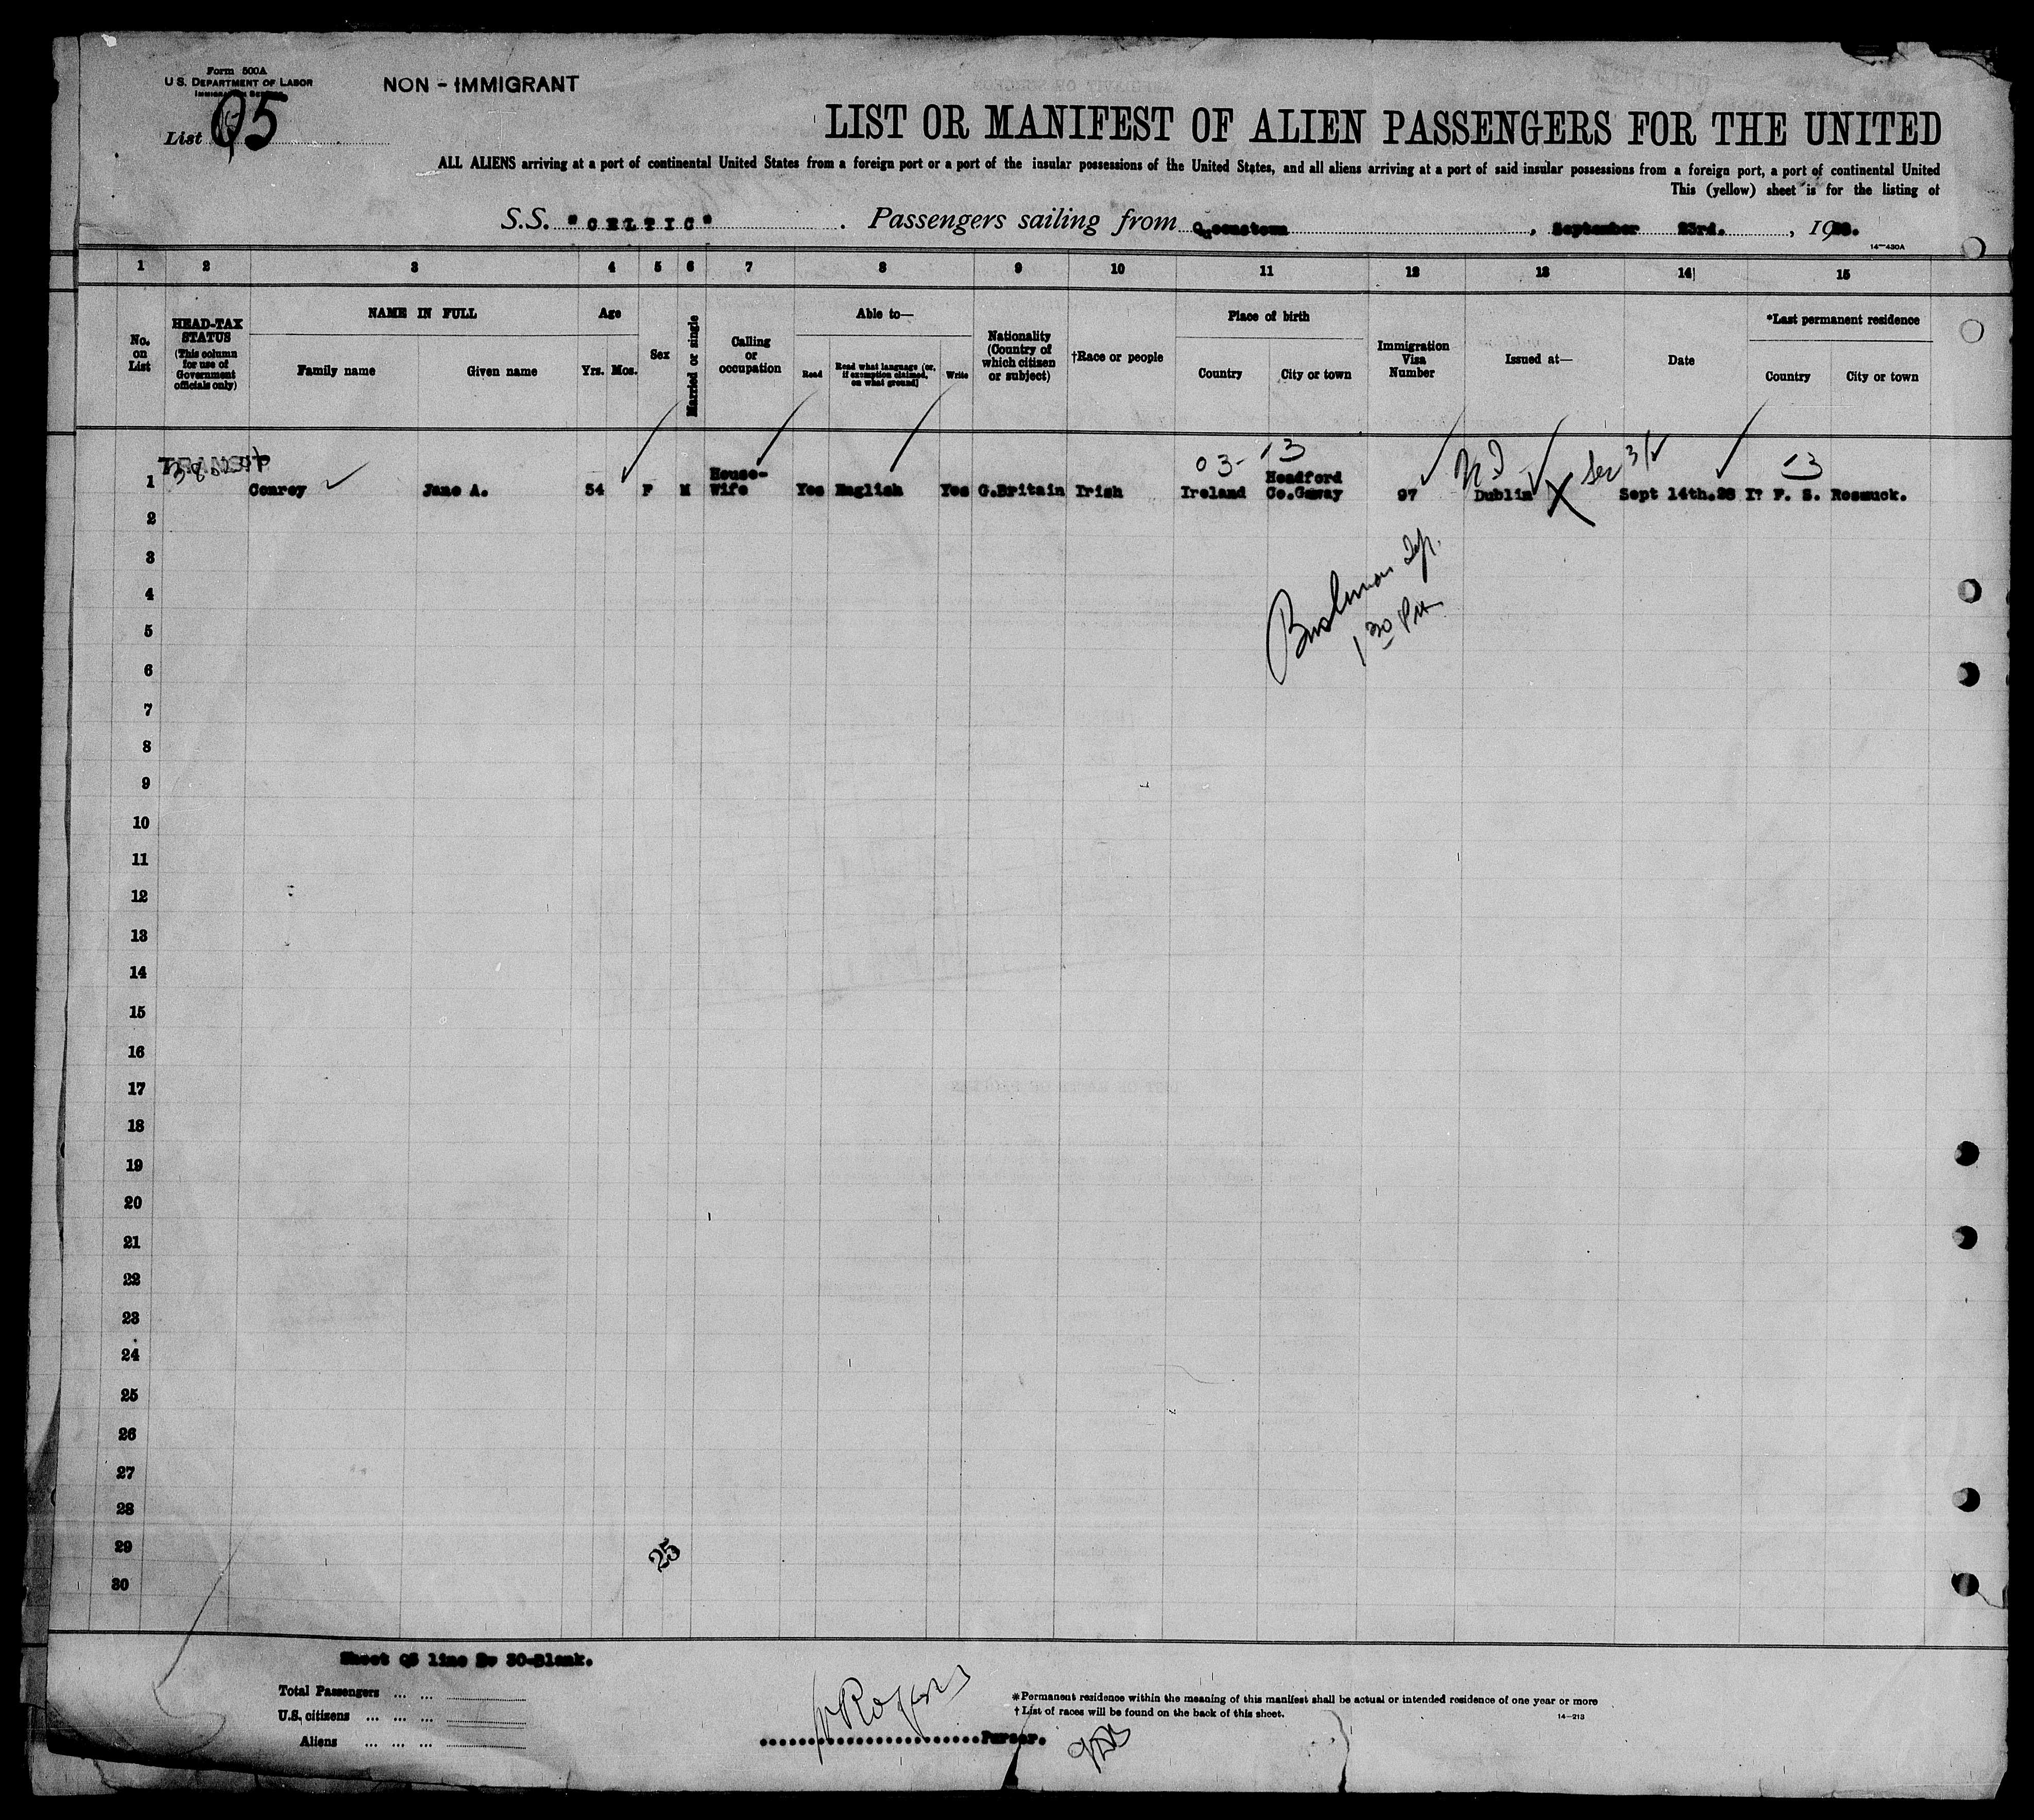 Form 500A
U.S. DEPARTMENT OF LABOR
IMMIGRATION SERVICE
NON - IMMIGRANT
List Q5
LIST OR MANIFEST OF ALIEN PASSENGERS FOR THE UNITED
ALL ALIENS arriving at a port of continental United States from a foreign port or a port of the insular possessions of the United States, and all aliens arriving at a port of said insular possessions from a foreign port, a port of continental United
This (yellow) sheet is for the listing of
S.S. "CELTIC". Passengers sailing from Queenstown, September 23rd., 1928.
14—430A
1 2 3 4 5 6 7 8 9 10 11 12 13 14 15
No. on List
HEAD-TAX STATUS (This column for use of Government officials only)
NAME IN FULL
Family name Given name
Age
Yrs. Mos.
Sex
Married or single
Calling or occupation
Able to—
Read
Read what language [or, if exemption claimed, on what ground]
Write
Nationality (Country of which citizen or subject)
†Race or people
Place of birth
Country City or town
Immigration Visa Number
Issued at—
Date
*Last permanent residence
Country City or town
TRANSIT
03- 13
13
1 Conroy Jane A. 54 F M House-Wife Yes English Yes G.Britain Irish Ireland Headford Co.Gaway 97 Dublin Sept 14th.28 I? F. S. Rosmuck.
2
3
4
5
1 30 PM
6
7
8
9
10
11
12
13
14
15
16
17
18
19
20
21
22
23
24
25
26
27
28
29
25
30
Sheet Q5 line 2v 30-Blank.
Total Passengers ... ...
U.S. citizens ... ... ...
Aliens ... ... ...
Rogers
Purser.
*Permanent residence within the meaning of this manifest shall be actual or intended residence of one year or more
† List of races will be found on the back of this sheet.
14—213